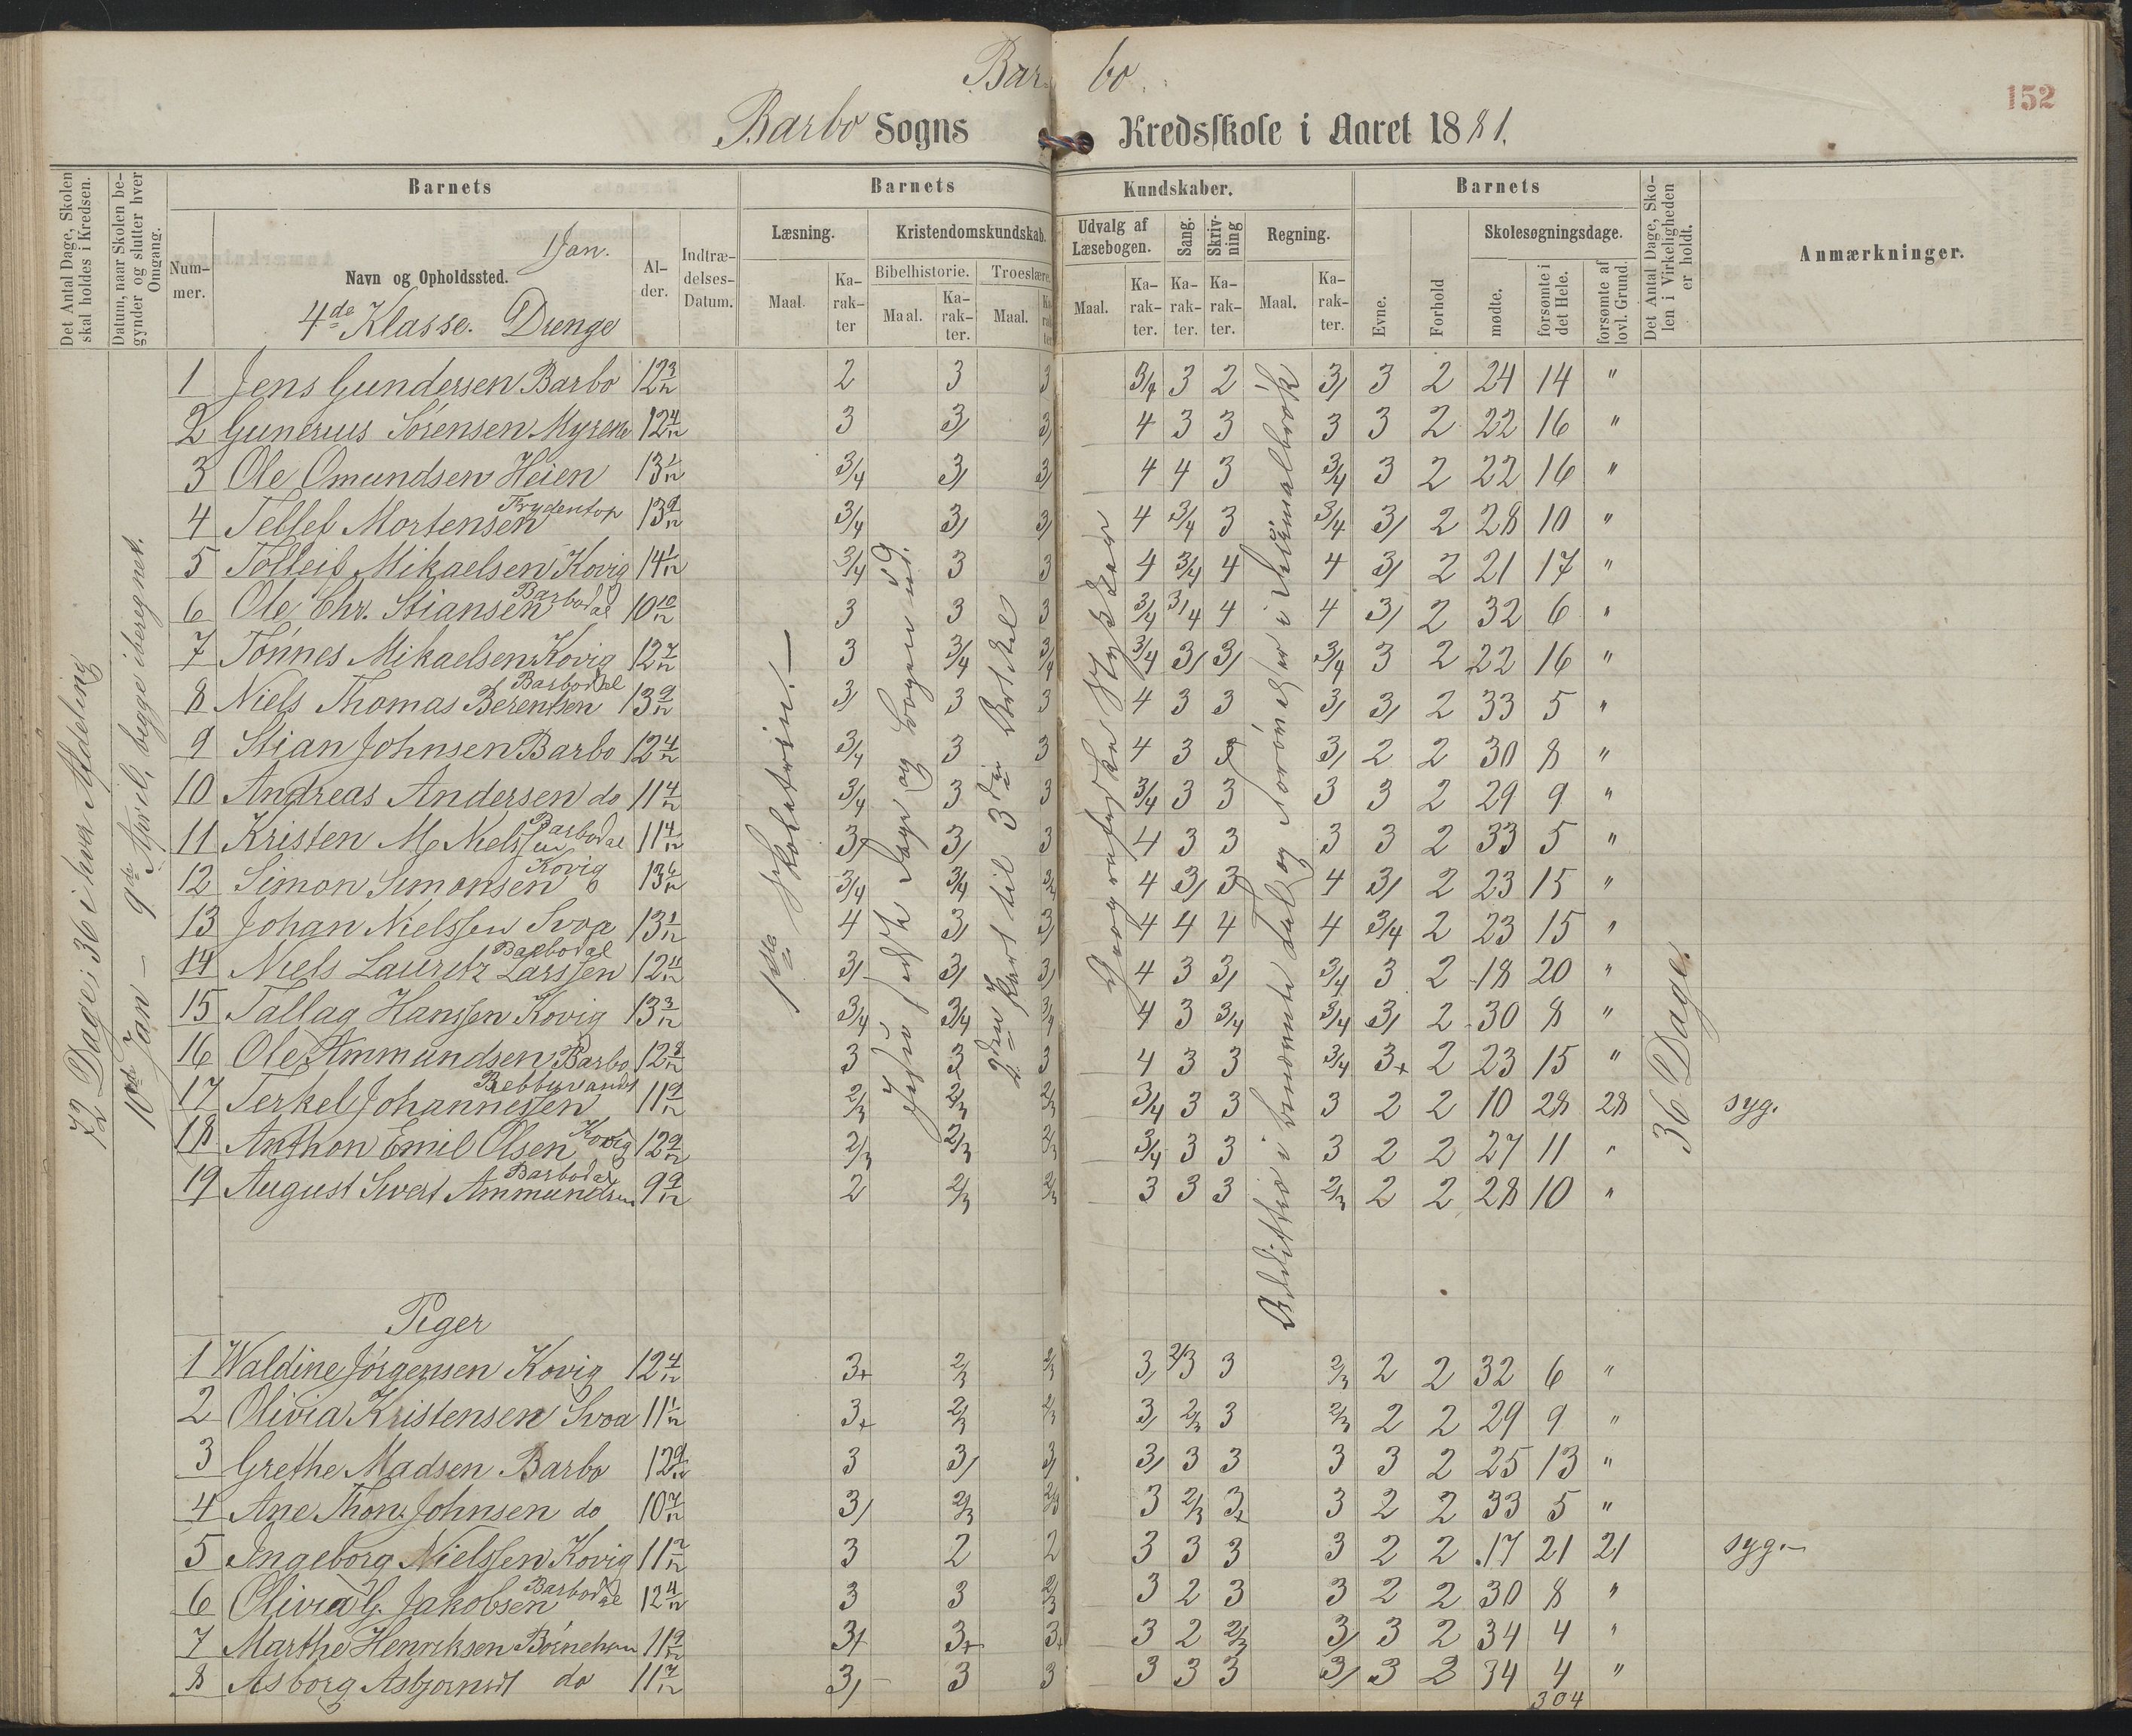 Bar- bo.
152
Barbo Sogns Kredsskole i Aaret 1881.
Det Antal Dage, Skolen skal holdes i Kredsen.
Datum, naar Skolen begynder og slutter hver Omgang.
Barnets
Num-mer.
Navn og Opholdssted.
1 Jan.
4de Klasse. Drenge
Al-der.
Indtræ-delses-Datum.
Barnets Kundskaber.
Læsning.
Maal.
Ka-rak-ter
Kristendomskundskab.
Bibelhistorie.
Maal.
Ka-rak-ter.
Troeslære.
Maal.
Udvalg af Læsebogen.
Maal.
Ka-rak-ter.
Sang.
Ka-rak-ter.
Skriv-ning
Ka-rak-ter.
Regning.
Maal.
Ka-rak-ter.
Barnets
Evne.
Forhold
Skolesøgningsdage.
mødte.
forsømte i det Hele.
forsømte af lovl. Grund.
Det Antal Dage, Sko-len i Virkeligheden er holdt.
Anmærkninger.
72 Dage; 36 i hver Afdeling
10de Jan – 9de April, begge iberegnet.
1ste Skoletrin. –
2den Part til 3die Artikel
Geografiske Stykker
36 Dage.
1 Jens Gundersen Barbo 12 3/12 2 3 3 3/4 3 2 3/ 3 2 24 14 "
2 Gunerius Sørensen 12 4/12 3 3/ 3/ 4 3 3 3 3 2 22 16 "
3 Ole Omundsen Heien 13 1/12 3/4 3/ 3/ 4 4 3 3/4 3 2 22 16 "
4 Tellef Mortensen 13 9/12 3/4 3/ 3/ 4 3/4 3 3/4 3/ 2 28 10 "
5 Tolleif Mikaelsen Kovig 14 1/12 3/4 3 3 4 3/4 4 4 3/ 2 21 17 "
6 Ole Chr. Stiansen Barbodal 10 10/12 3 3 3 3/4 3/4 4 4 3/ 2 32 6 "
7 Tønnes Mikaelsen Kovig 12 7/12 3 3/4 3/4 3/4 3/ 3/ 3/4 3 2 22 16 "
8 Niels Thomas Berentsen Barbodal 13 9/12 3/ 3 3 4 3 3 3/ 3/ 2 33 5 "
9 Stian Johnsen Barbo 12 4/12 3/4 3 3 4 3 3 3/ 2 2 30 8 "
10 Andreas Andersen do 11 4/12 3/4 3 3 3/4 3 3 3 3 2 29 9 "
11 Kristen M Nielssen Barbodal 11 4/12 3/ 3/ 3 4 3 3 3 3 2 33 5 "
12 Simon Simonsen Kovig 13 6/12 3/4 3/4 3/4 4 3/ 3 4 3/ 2 23 15 "
13 Johan Nielssen Svoa 13 1/12 4 3/ 3/ 4 4 4 4 3/4 2 23 15 "
14 Niels Lauritz Larssen Barbodal 12 4/12 3/ 3/ 3/ 4 3 3/ 3/4 3 2 18 20 "
15 Tallag Hanssen Kovig 13 3/12 3/4 3/4 3/4 4 3 3/4 3/4 3/ 2 30 8 "
16 Ole Ammundsen Barbo 12 8/12 3 3 3 4 3 3 3/4 3+ 2 23 15 "
17 Terkel Johannessen 11 9/12 2/3 2/3 2/3 3/4 3 3 3 2 2 10 28 28 syg.
18 Anthon Emil Olsen Kovig 12 9/12 2/3 2/3 2/3 3/4 3 3 3 2 2 27 11 "
19 August Sivert Ammundsen Barbodal 9 9/12 2 2/3 2/3 3 3 3 2/3 2 2 28 10 "
Piger
1 Waldine Jørgensen Kovig 12 4/12 3+ 2/3 2/3 3/ 2/3 3 2/3 2 2 32 6 "
2 Olivia Kristensen Svoa 11 1/12 3+ 2/3 2/3 3/ 2/3 3 2/3 2 2 29 9 "
3 Grethe Madsen Barbo 12 9/12 3 3/ 3/ 3/ 3 3 3 3 2 25 13 "
4 Ane Thom. Johnsen do 10 7/12 3/ 2/3 2/3 3 2/3 3+ 3 2 2 33 5 "
5 Ingeborg Nielssen Kovig 11 2/12 3 2 2 3 3 3 3 2 2 17 21 21 syg. –
6 Olivia G. Jakobsen Barbodal 12 4/12 3 3 2/3 3 2 3 3 2 2 30 8 "
7 Marthe Henriksen 11 9/12 3+ 3+ 3+ 3 2 2/3 3/ 3 2 34 4 "
8 Asborg do 11 7/12 3/ 3 3 3 3 3 3/ 3 2 34 4 "
304